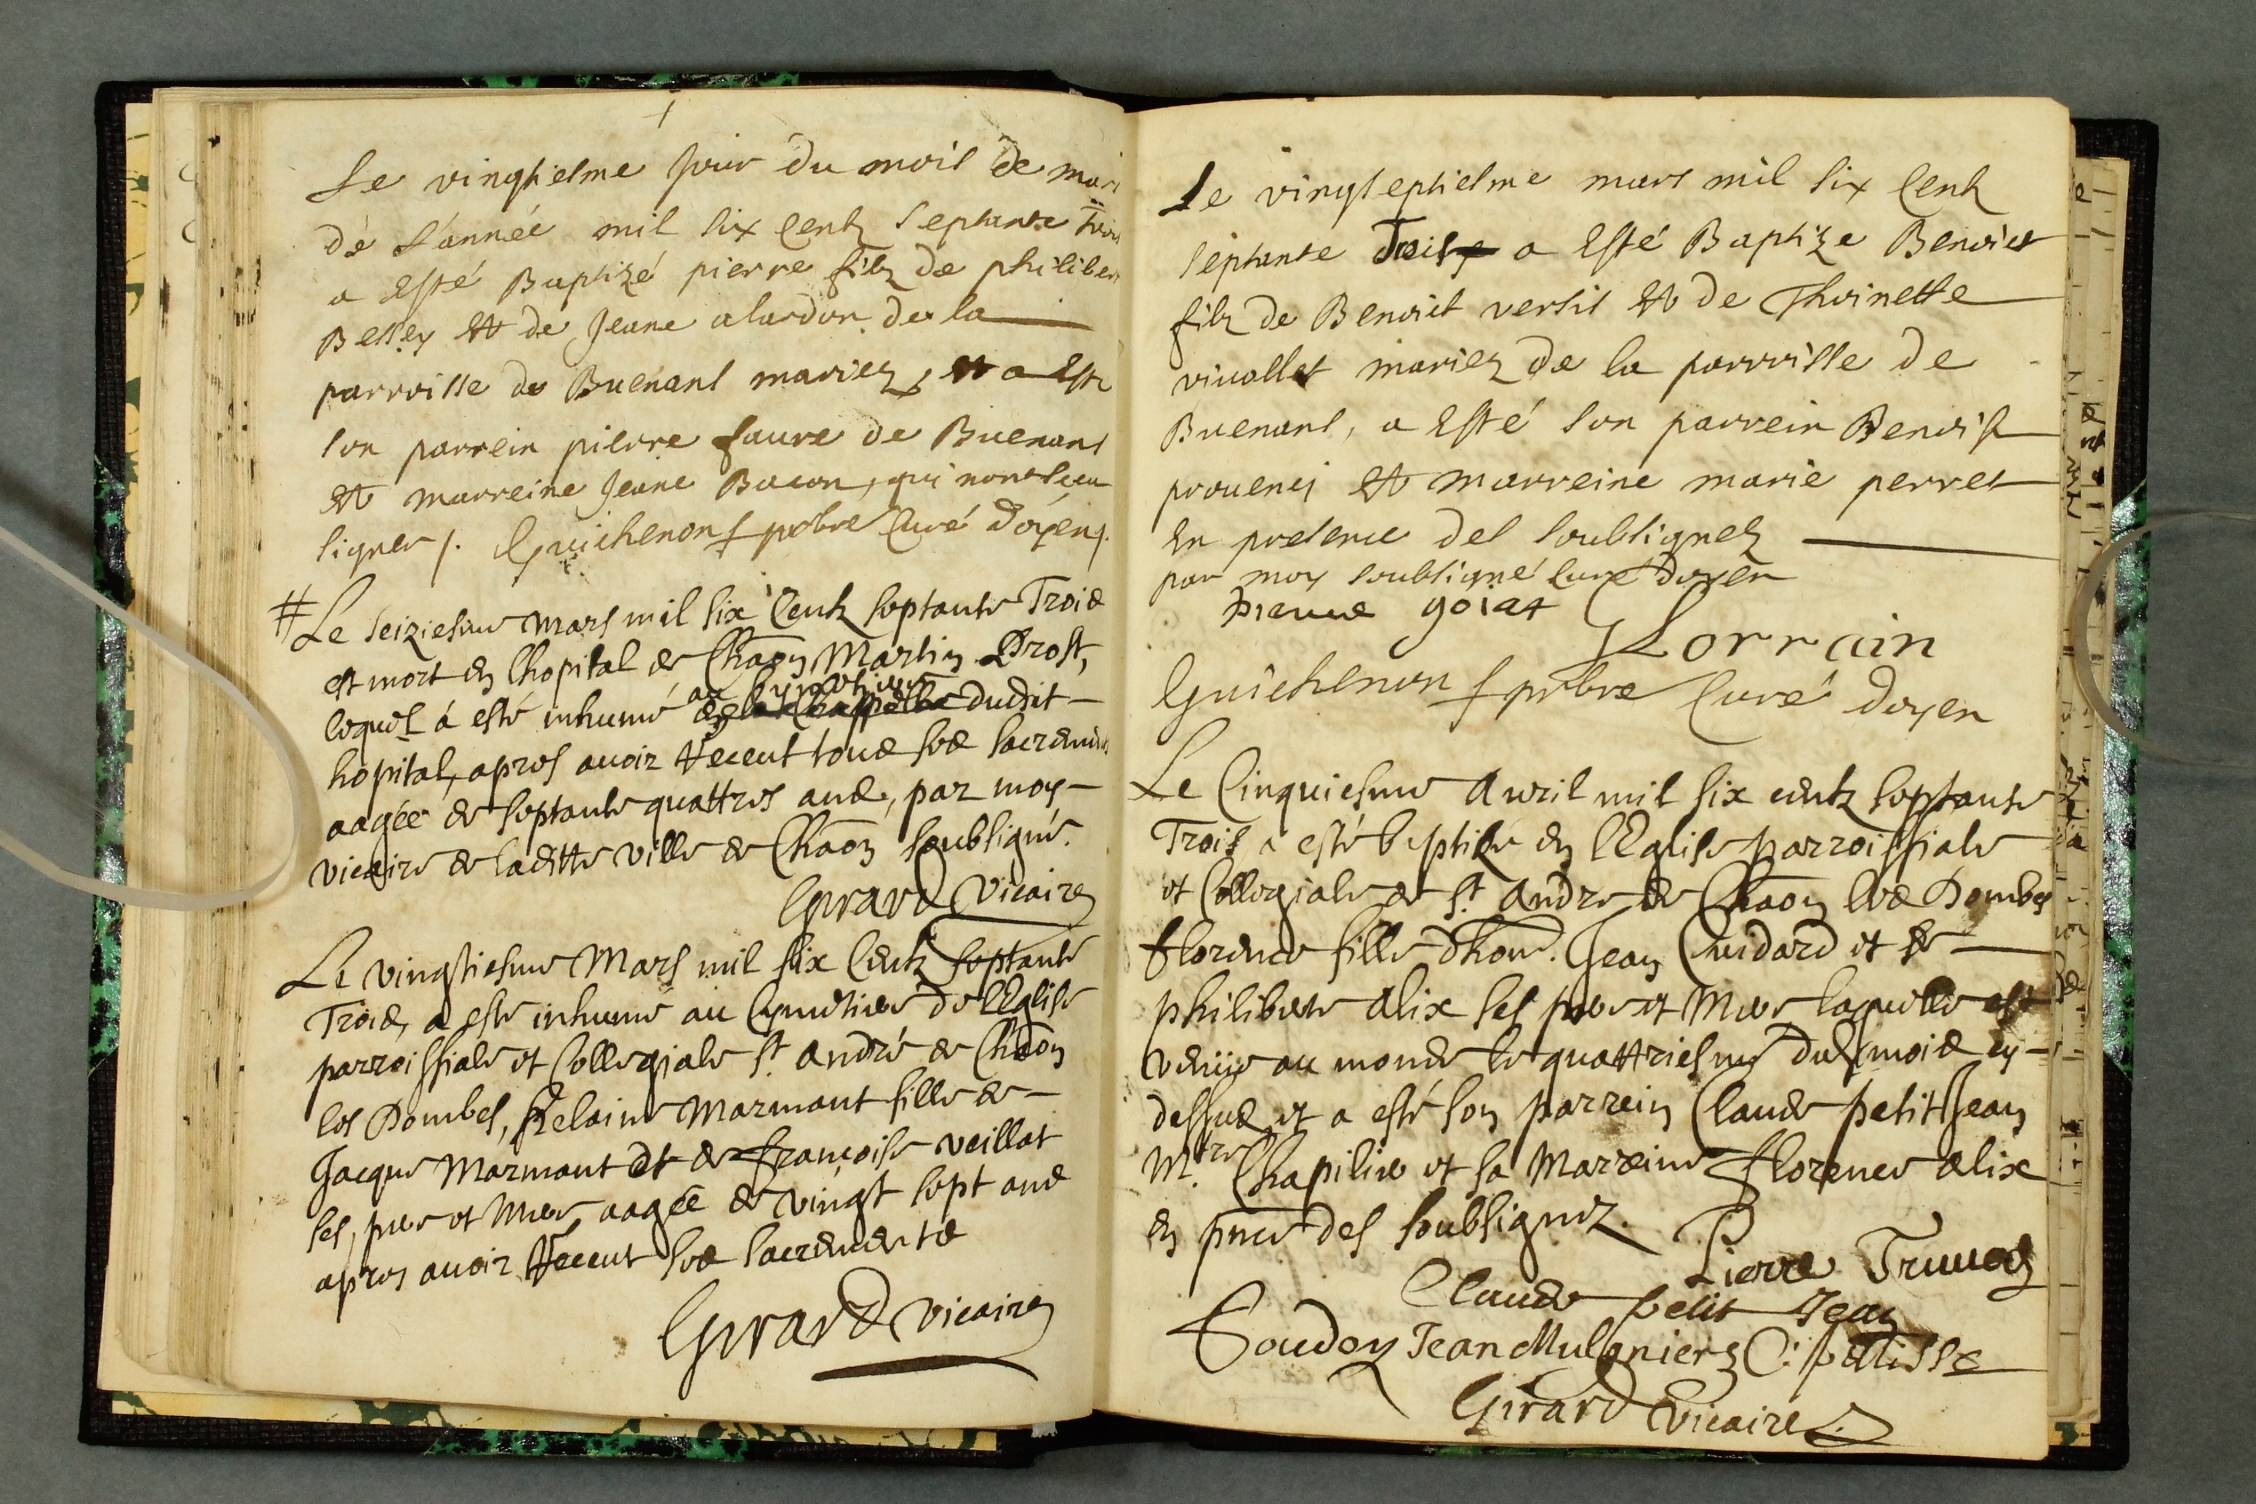 Le vingtiesme jour du mois de mars
de l'année mil six centz septante trois
a esté Baptizé pierre filz de philibert
Bessey et de Jeane alardon de la
parroisse de Buenans mariez, et a esté
son parrein pierre faure de Buenans
et marreine Jeane Bacon, qui nont sceu
signer /. Guichenon pbre Curé doyen /.
# Le seiziesme Mars mil six Centz septante Trois
est mort en lhopital de Chaōn Martin Prost,
lequel à esté inhumé au Cymetiere dudit
hopital, apres avoir Receut tous ses sacremens
aagée de septante quattres ans, par moy
vicaire de laditte ville de Chaōn soubsigné.
Girard Vicaire
Le vingtiesme Mars mil six Centz septante
Trois, a esté inhumé au Cymetiere de lEglise
parroissiale et Collegiale St. André de Chaōn
les Dombes, Helaine Marmont fille de
Jacque Marmont et de françoise veillat
ses pere et Mere, aagée de vingt sept ans
apres avoir Receut ses sacrements
Girard Vicaire
Le vingtseptiesme mars mil six Centz
septante Trois a esté Baptize Benoist
filz de Benoist versis et de Thoinette
viuollet mariez de la parroisse de
Buenans, a esté son parrein Benoist
prouens et marreine marie perret
En presence des soubsignez
par moy soubsigné Curé doyen
pierre goiat
Lorrain
Guichenon pbre Curé doyen
Le Cinquiesme Avril mil six centz septante
Trois a esté baptisée en lEglise parroissiale
et Collegiale de St. André de Chaōn les Dombes
florence fille dhon. Jean Cuidard et de
philiberte alix ses pere et Mere laquelle est
venüe au monde le quattriesme du mois cy
dessus et a esté son parrein Claude petit Jean
Mtre. Chapilier et sa Marreine florence alix
en pnce des soubsignez.
Pierre Truuoz
Claude petit Jean
Goudon Jean Mulgniers C: palisse
Girard Vicaire